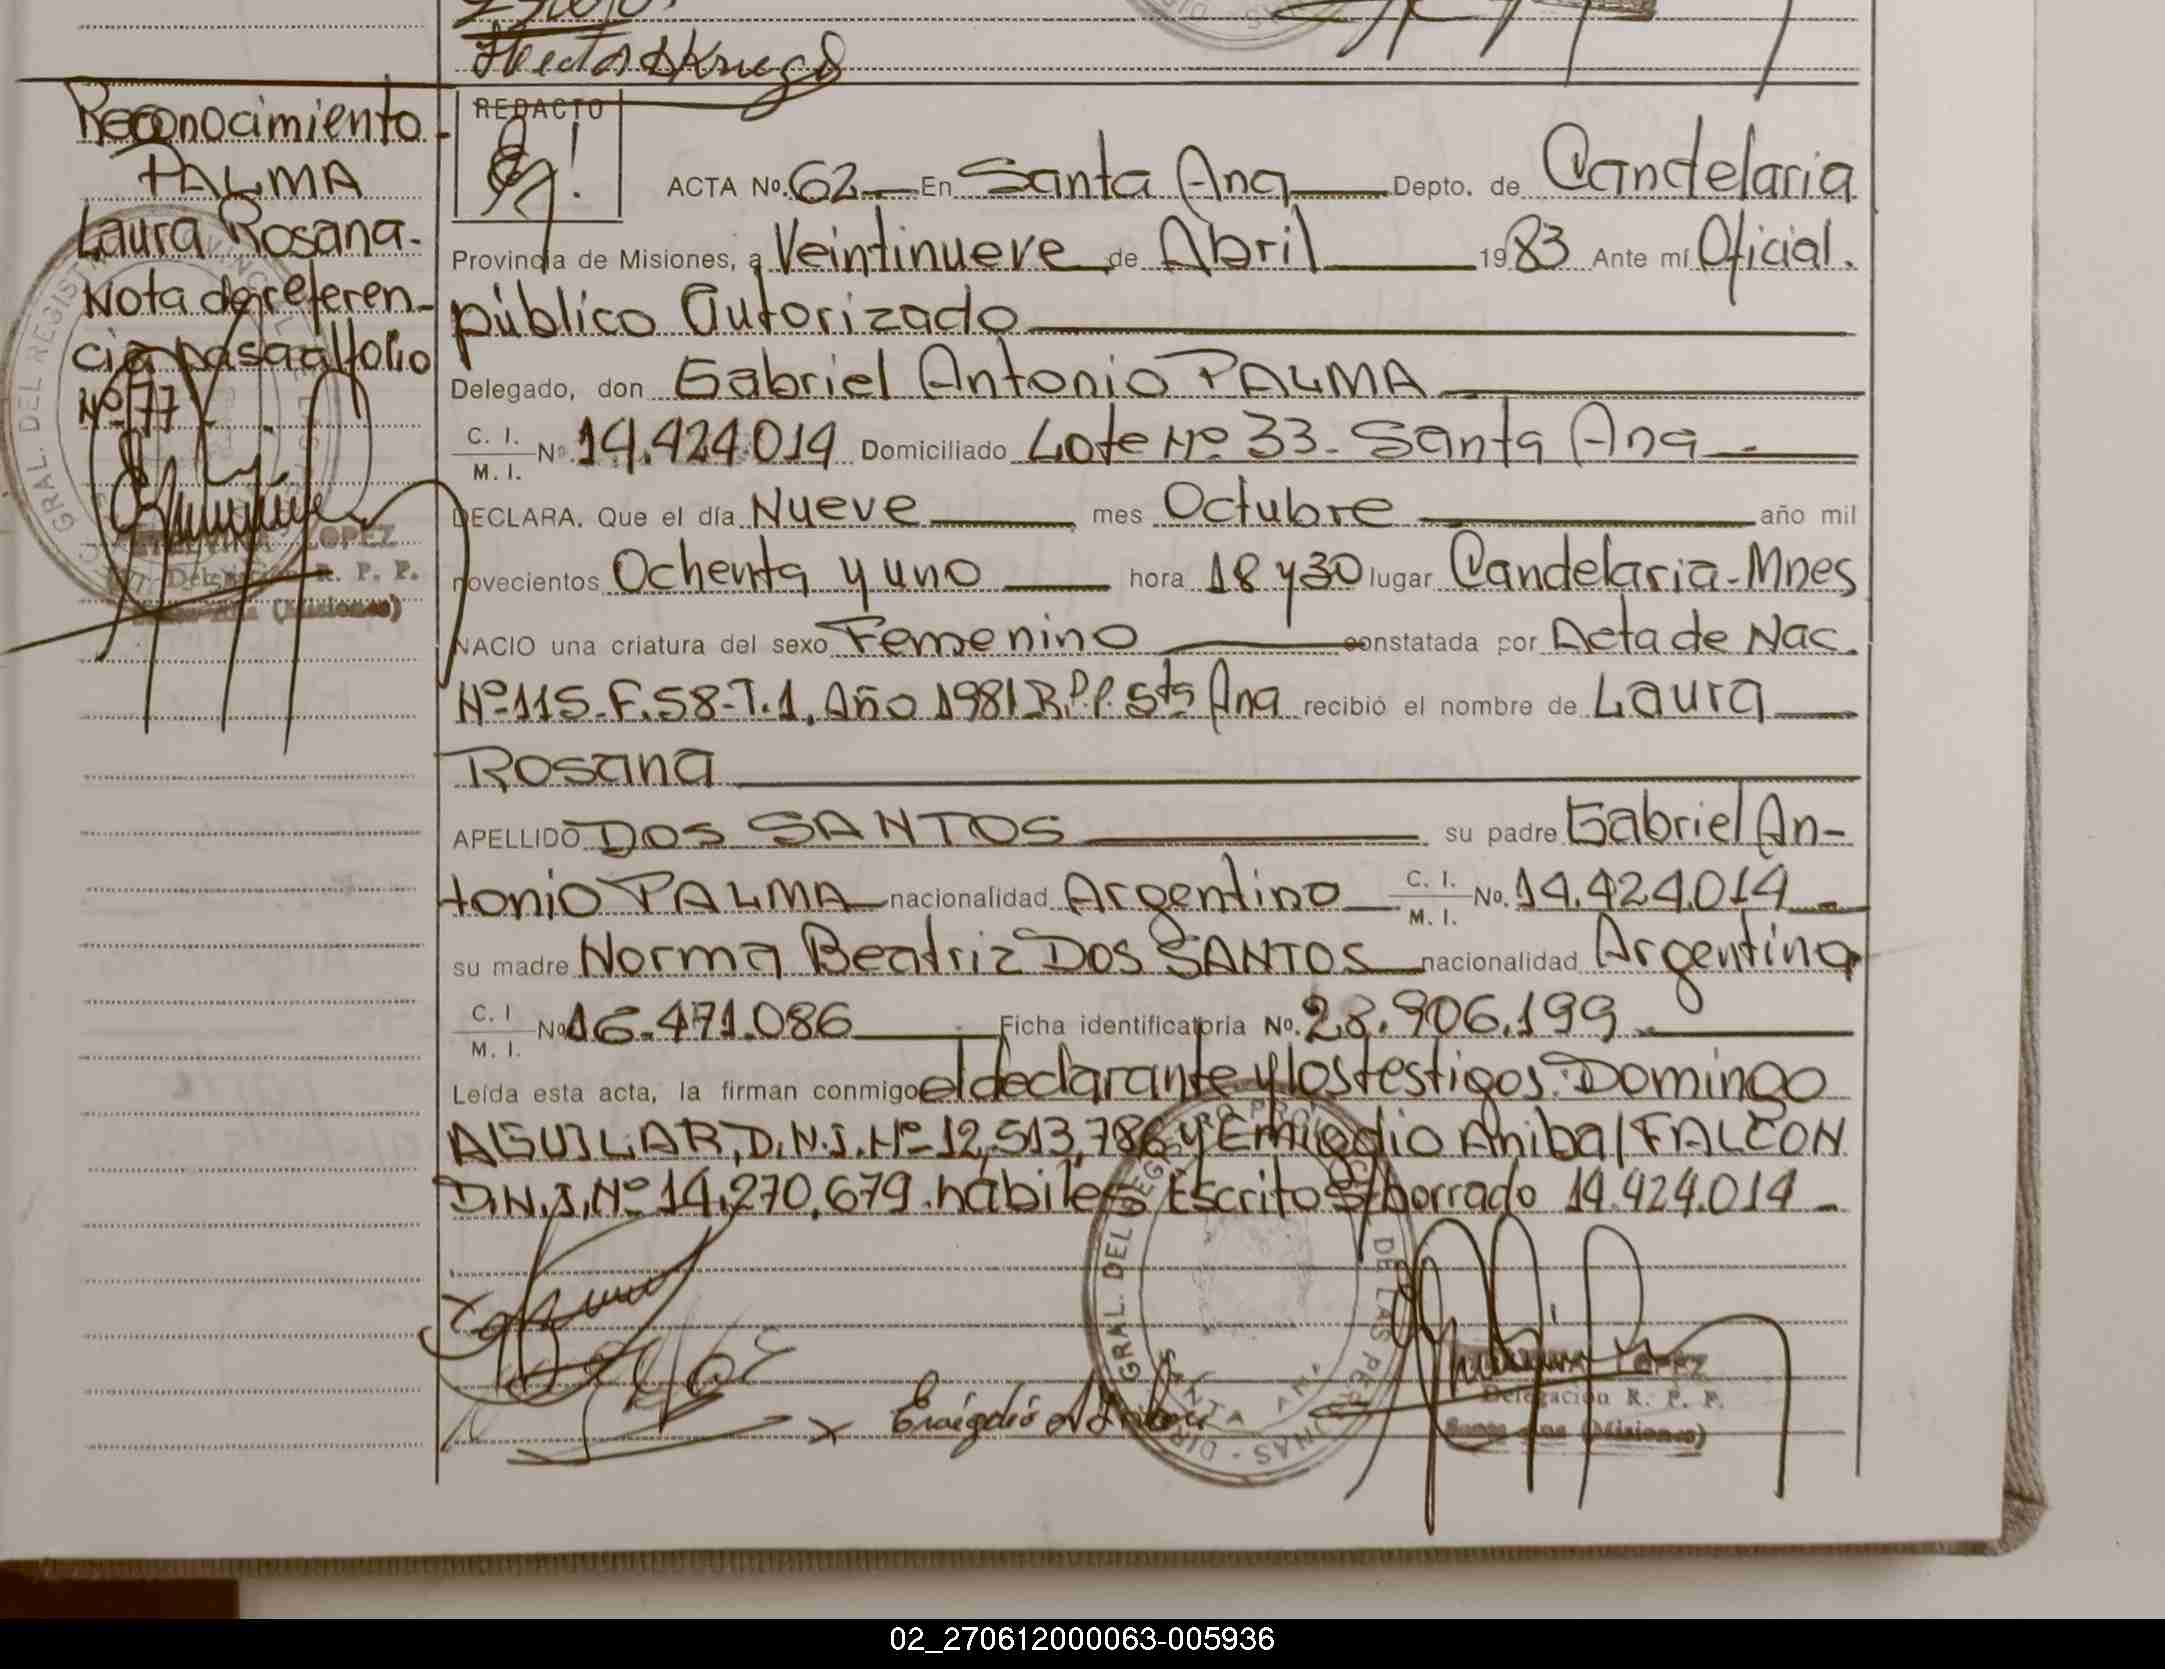 Hector A Krieger
Reconocimiento.
PALMA
Laura Rosana.
Nota de referen-
cia pasa al folio
Nº 77
LOPEZ
Delegación R. P. P.
Santa Ana (Misiones)
REDACTO
ACTA No. 62 En Santa Ana Depto. de Candelaria
Provincia de Misiones, a Veintinueve de Abril 1983 Ante mí Oficial.
público Autorizado
Delegado, don Gabriel Antonio PALMA
C. I. M. I. Nº 14.424.014 Domiciliado Lote Nº 33 - Santa Ana
DECLARA. Que el día Nueve mes Octubre año mil
novecientos Ochenta y uno hora 18 y 30 lugar Candelaria - Mnes
NACIO una criatura del sexo Femenino constatada por Acta de Nac.
Nº 115 - F. 58 - T. 1. Año 1981 R.P.P. Sta Ana recibió el nombre de Laura
Rosana
APELLIDO DOS SANTOS su padre Gabriel An-
tonio PALMA nacionalidad Argentino C. I. M. I. No. 14.424.014
su madre Norma Beatriz DOS SANTOS nacionalidad Argentina
C. I M. I. No 16.471.086 Ficha identificatoria No. 28.906.199
Leída esta acta, la firman conmigo el declarante y los testigos: Domingo
AGUILAR, D.N.I. Nº 12,513,786 y Emigdio Anibal FALCON
D.N.I. Nº 14,270,679. habiles Escrito S/borrado 14.424.014
x Emigdio A
LOPEZ
Delegación R. P. P.
Santa Ana (Misiones)
02_270612000063-005936